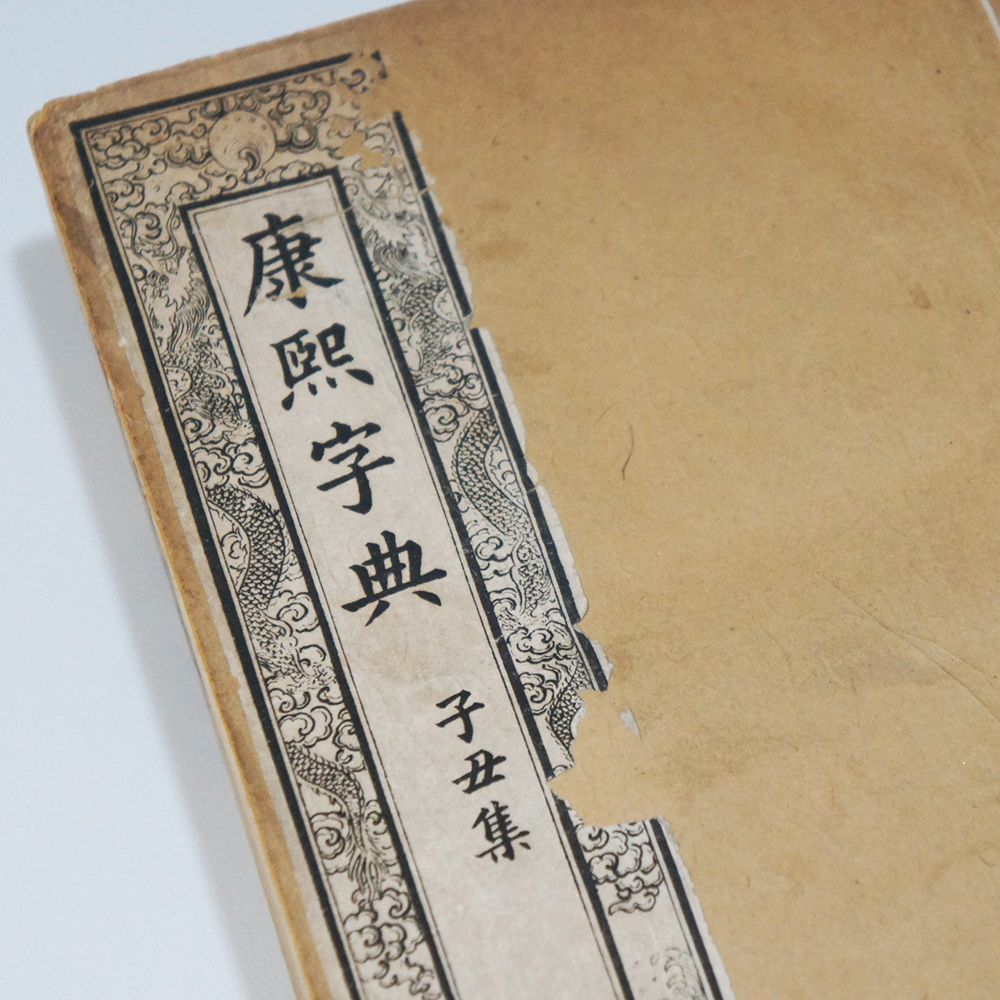 康熙字典
子丑集